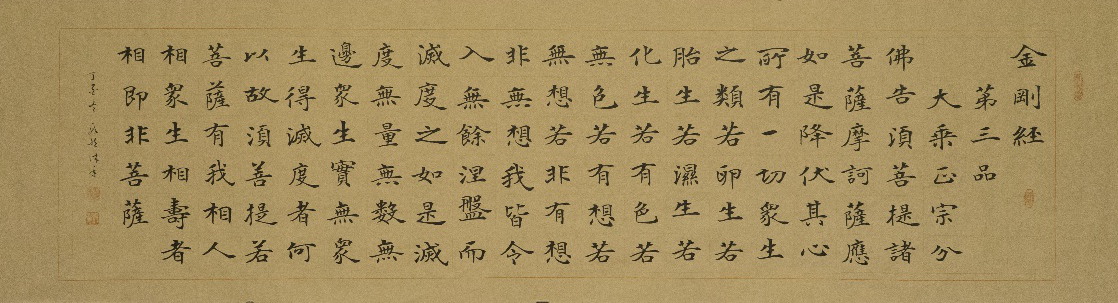 金剛経
第三品
大乘正宗分
佛告須菩提諸
菩薩摩訶薩應
如是降伏其心
所有一切衆生
之類若卵生若
胎生若濕生若
化生若有色若
無色若有想若
無想若非有想
非無想我皆令
入無餘涅盤而
滅度之如是滅
度無量無數無
邊衆生實無衆
生得滅度者何
以故須菩提若
菩薩有我相人
相衆生相壽者
相即非菩薩